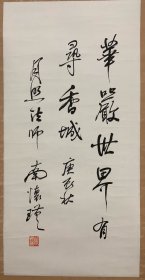 華嚴世界有
尋香城 庚辰秋
月照法師
南懷瑾